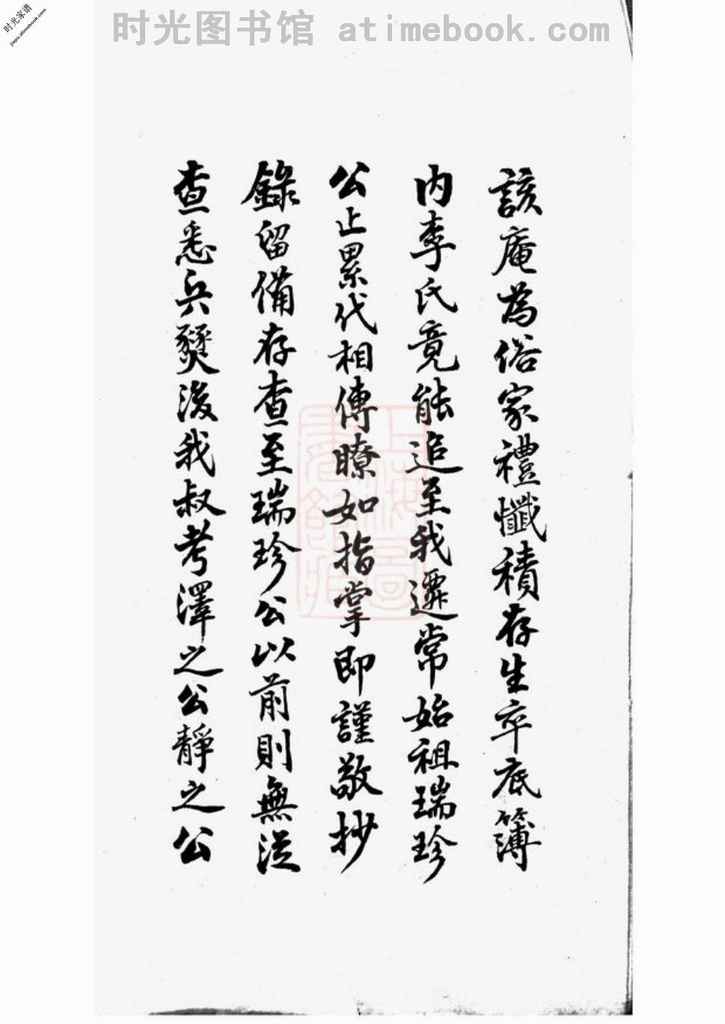 时光图书馆 atimebook.com
时光家谱
該庵為俗家禮懺積存生卒底簿
内李氏竟能追至我遷常始祖瑞珍
公止累代相傳瞭如指掌即謹敬抄
錄留備存查至瑞珍公以前則無從
查悉兵燹後我叔考澤之公靜之公